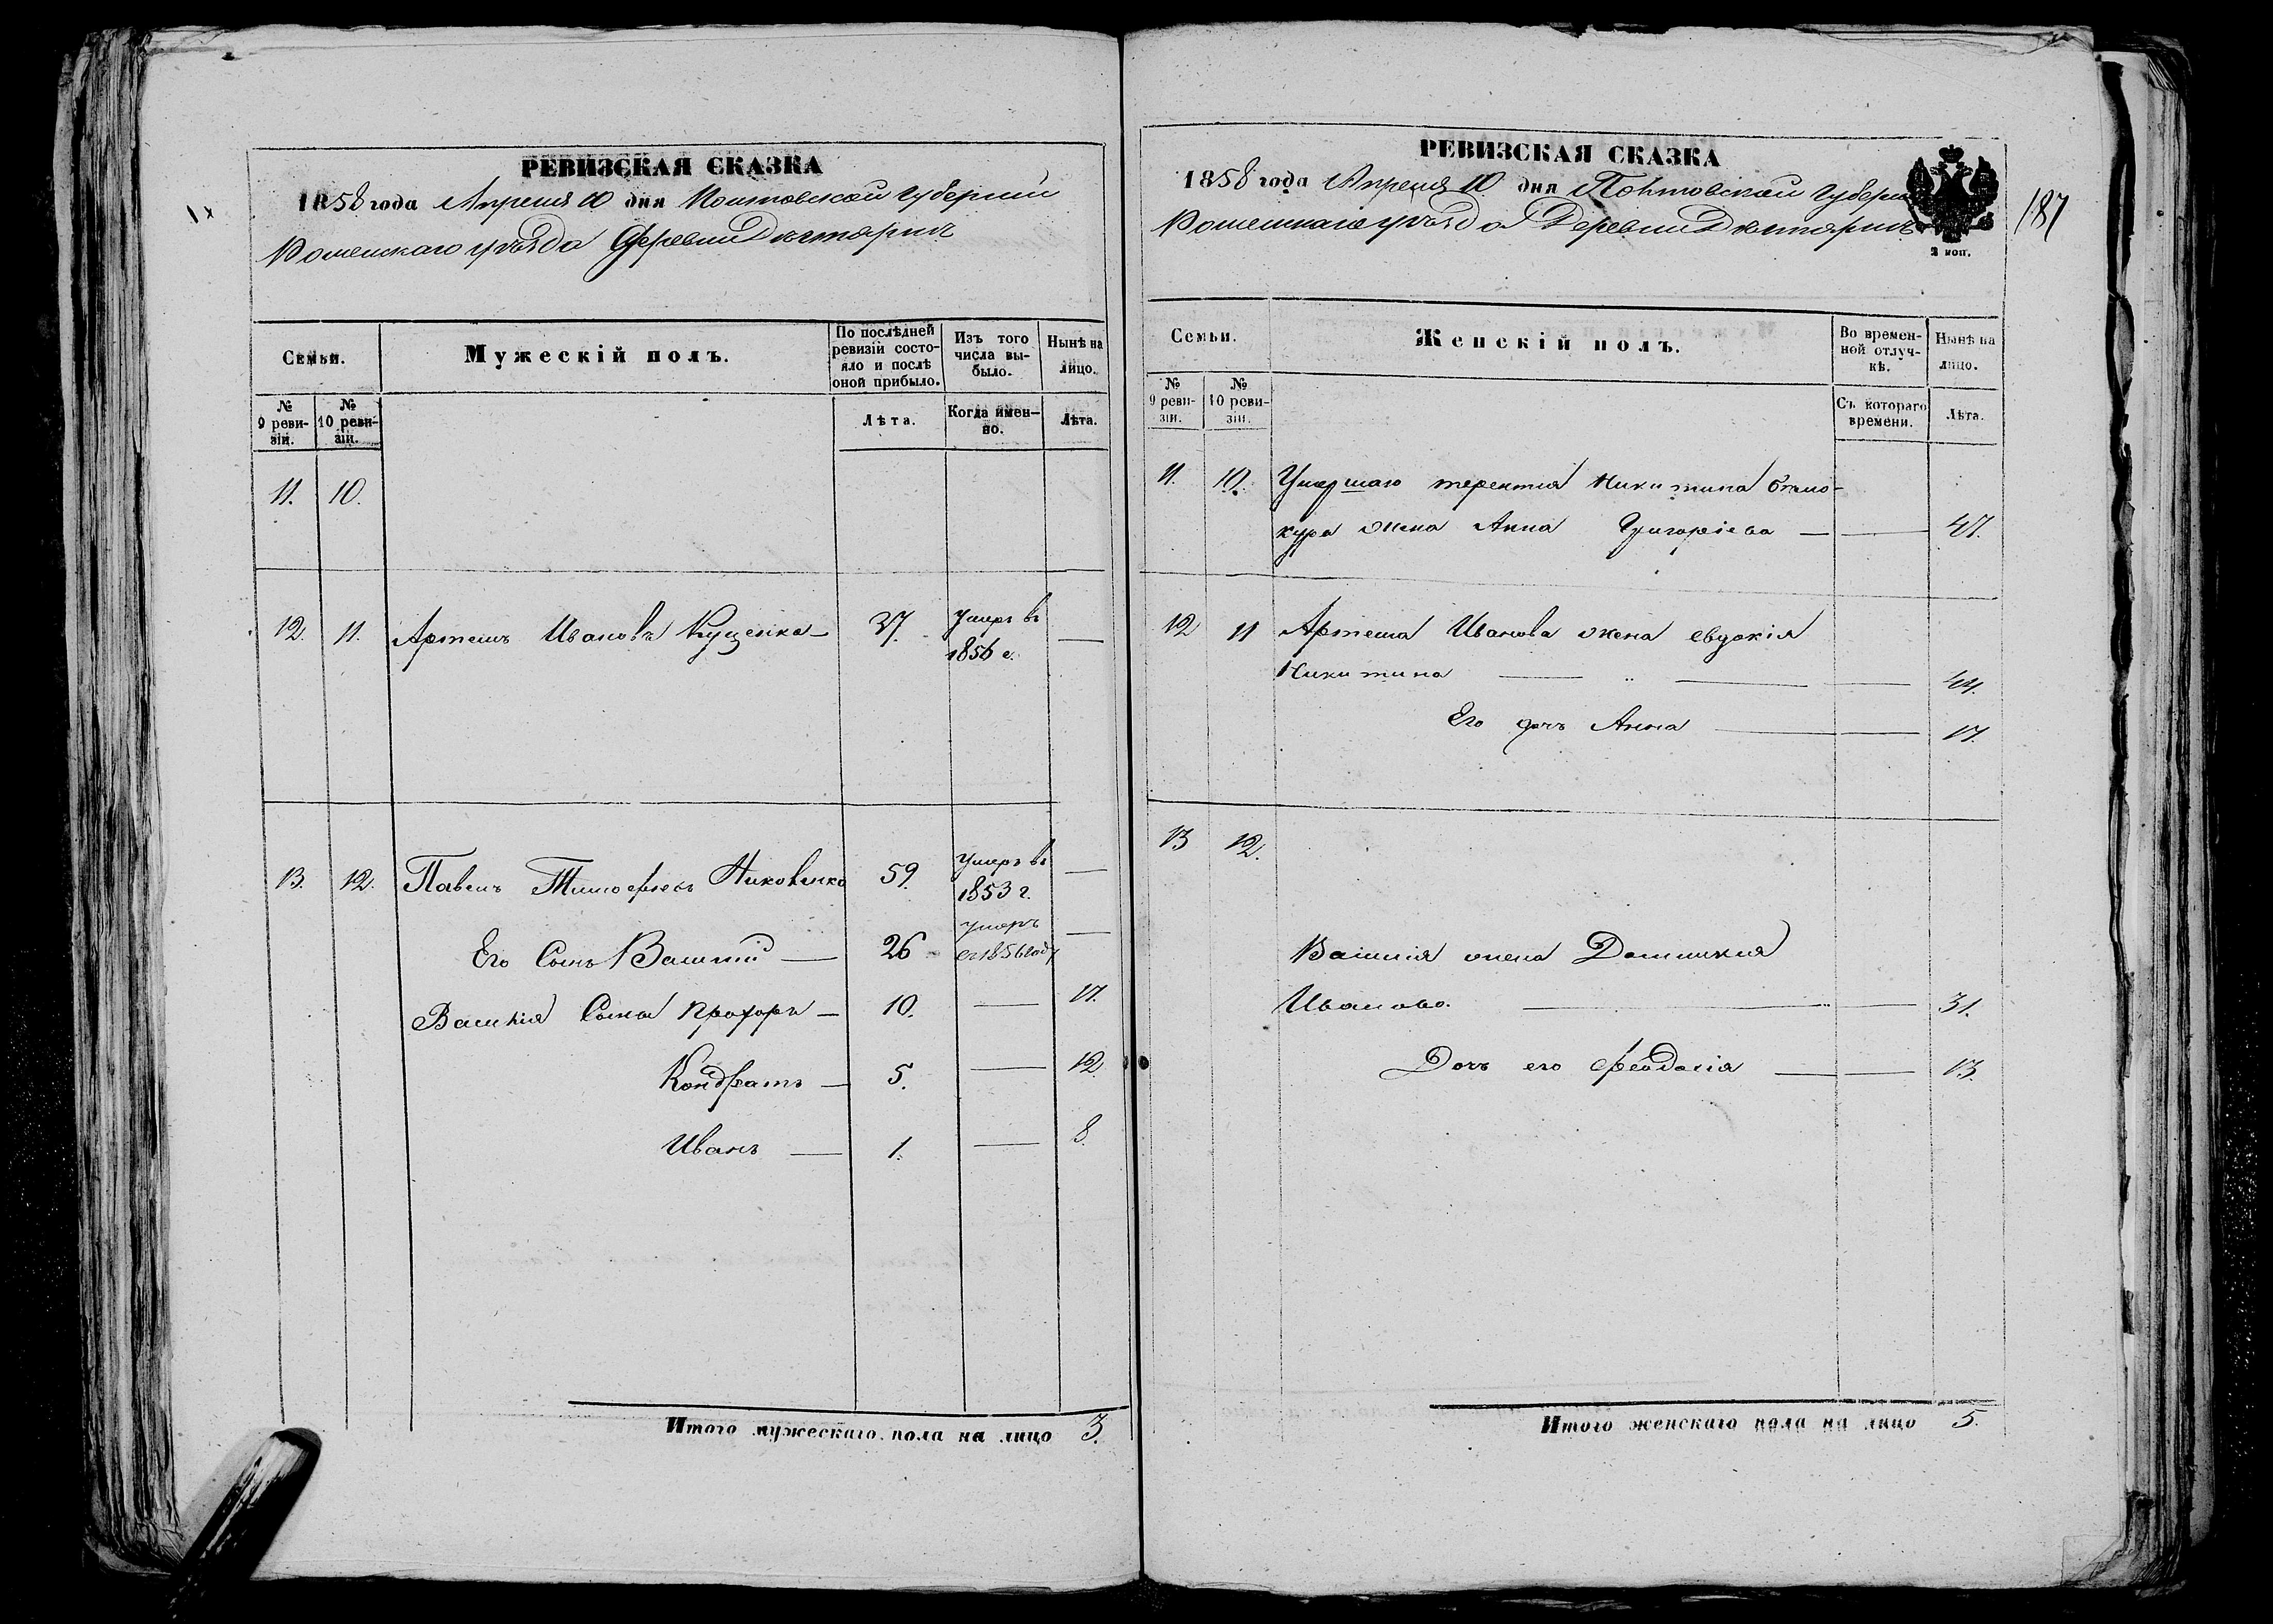 РЕВИЗСКАЯ СКАЗКА
1858 года Апреля 10 дня Полтавской Губернии
Роменскаго уѣзда Деревни Дѣхтярки
Семьи.
Мужескій полъ.
По послѣдней ревизіи состояло и послѣ оной прибыло.
Изъ того числа выбыло.
Нынѣ на лицо.
№ 9 ревизіи.
№ 10 ревизіи.
Лѣта.
Когда именно.
Лѣта.
11. 10.
12. 11. Артемъ Ивановъ Куценко — 37. Умеръ въ 1856 г. —
13. 12. Павелъ Тимофѣевъ Никовенко 59. Умеръ въ 1853 г. —
Его Сынъ Василій — 26 умеръ въ 1856 году —
Василія Сынъ Прохоръ — 10. — 17.
Кондратъ — 5. — 12.
Иванъ — 1. — 8.
Итого мужескаго пола на лицо 3.
187
РЕВИЗСКАЯ СКАЗКА
1858 года Апреля 10 дня Полтовской Губерн
Роменскаго уѣзда Деревни Дѣхтярки
2 коп.
Семьи.
Женскій полъ.
Во временной отлучкѣ.
Нынѣ на лицо.
№ 9 ревизіи.
№ 10 ревизіи.
Съ котораго времени.
Лѣта.
11. 10. Умершаго терентія Никитина Бѣло-
кура жена Анна Григоріева — — 47.
12 11 Артема Иванова жена евдокія
Никитина — — — 44.
Его дочь Анна — — 17.
13 12.
Василія жена Домникия
Иванова — — 31.
Дочь его Феодосія — — 13.
Итого женскаго пола на лицо 5.